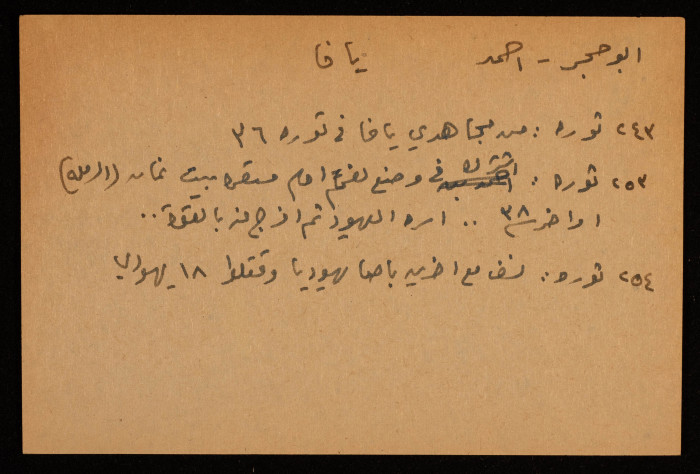 ابو حجر - احمد يافا
٢٤٣ ثوره : من مجاهدي يافا في ثوره ٣٦
٢٥٣ ثوره : اشترك في وضع لغم امام مستعمره بيت عمان (الرمله)
اواخر ٣٨ .. اسره اليهود ثم افرج عنه بالقوة ..
٢٥٤ ثوره : نسف مع اخرين باصا يهوديا وقتلوا ١٨ يهوديا